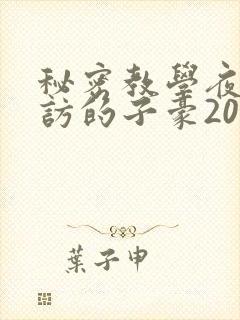 秘密教學夜
訪的子豪20
葉子申